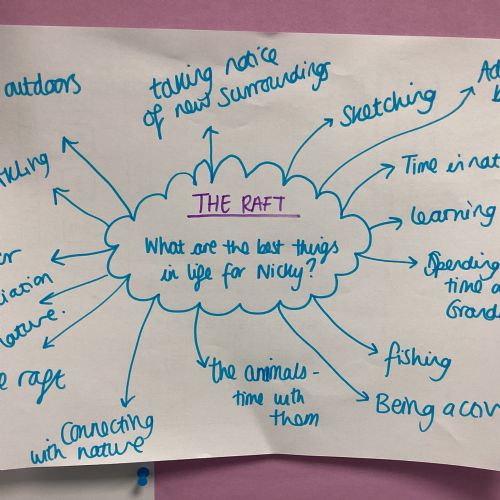 THE RAFT
What are the best things
in life for Nicky?
outdoors
taking notice
of new surroundings
Sketching
Time in
learning
Spending
time
fishing
Being a
the animals -
time with
them
Connecting
with nature
raft
nature.